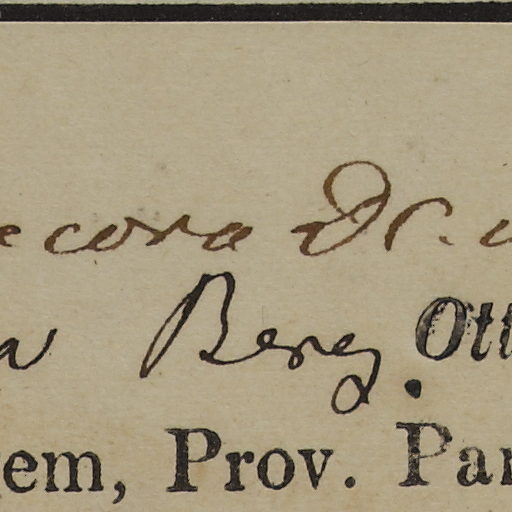 ecora Dr.
Berg. Ott
em, Prov. Par